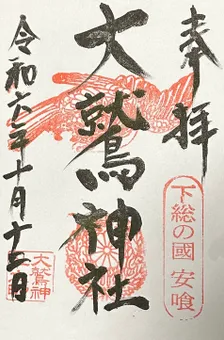 奉拝
下総の國 安喰
大鷲神社
令和六年十月十三日
大鷲神